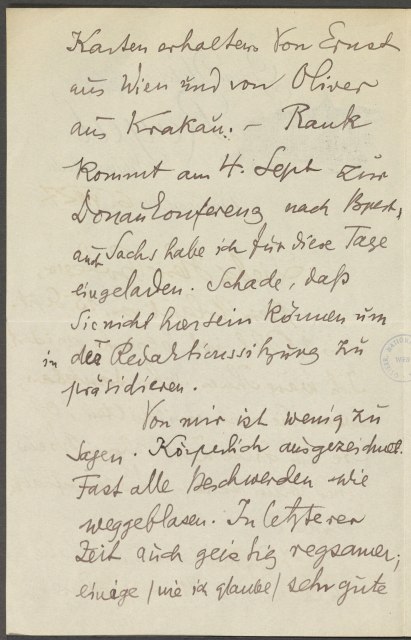 Karten erhalten von Ernst
aus Wien und von Oliver
aus Krakau. – Rank
kommt am 4. Sept zur
Donaukonferenz nach Bpest,
auch Sachs habe ich für diese Tage
eingeladen. Schade, daß
Sie nicht hier sein können um
in der Redaktionssitzung zu
präsidieren.
Von mir ist wenig zu
sagen. Körperlich ausgezeichnet.
Fast alle Beschwerden wie
weggeblasen. In letzterer
Zeit auch geistig regsamer;
einige /wie ich glaube/ sehr gute